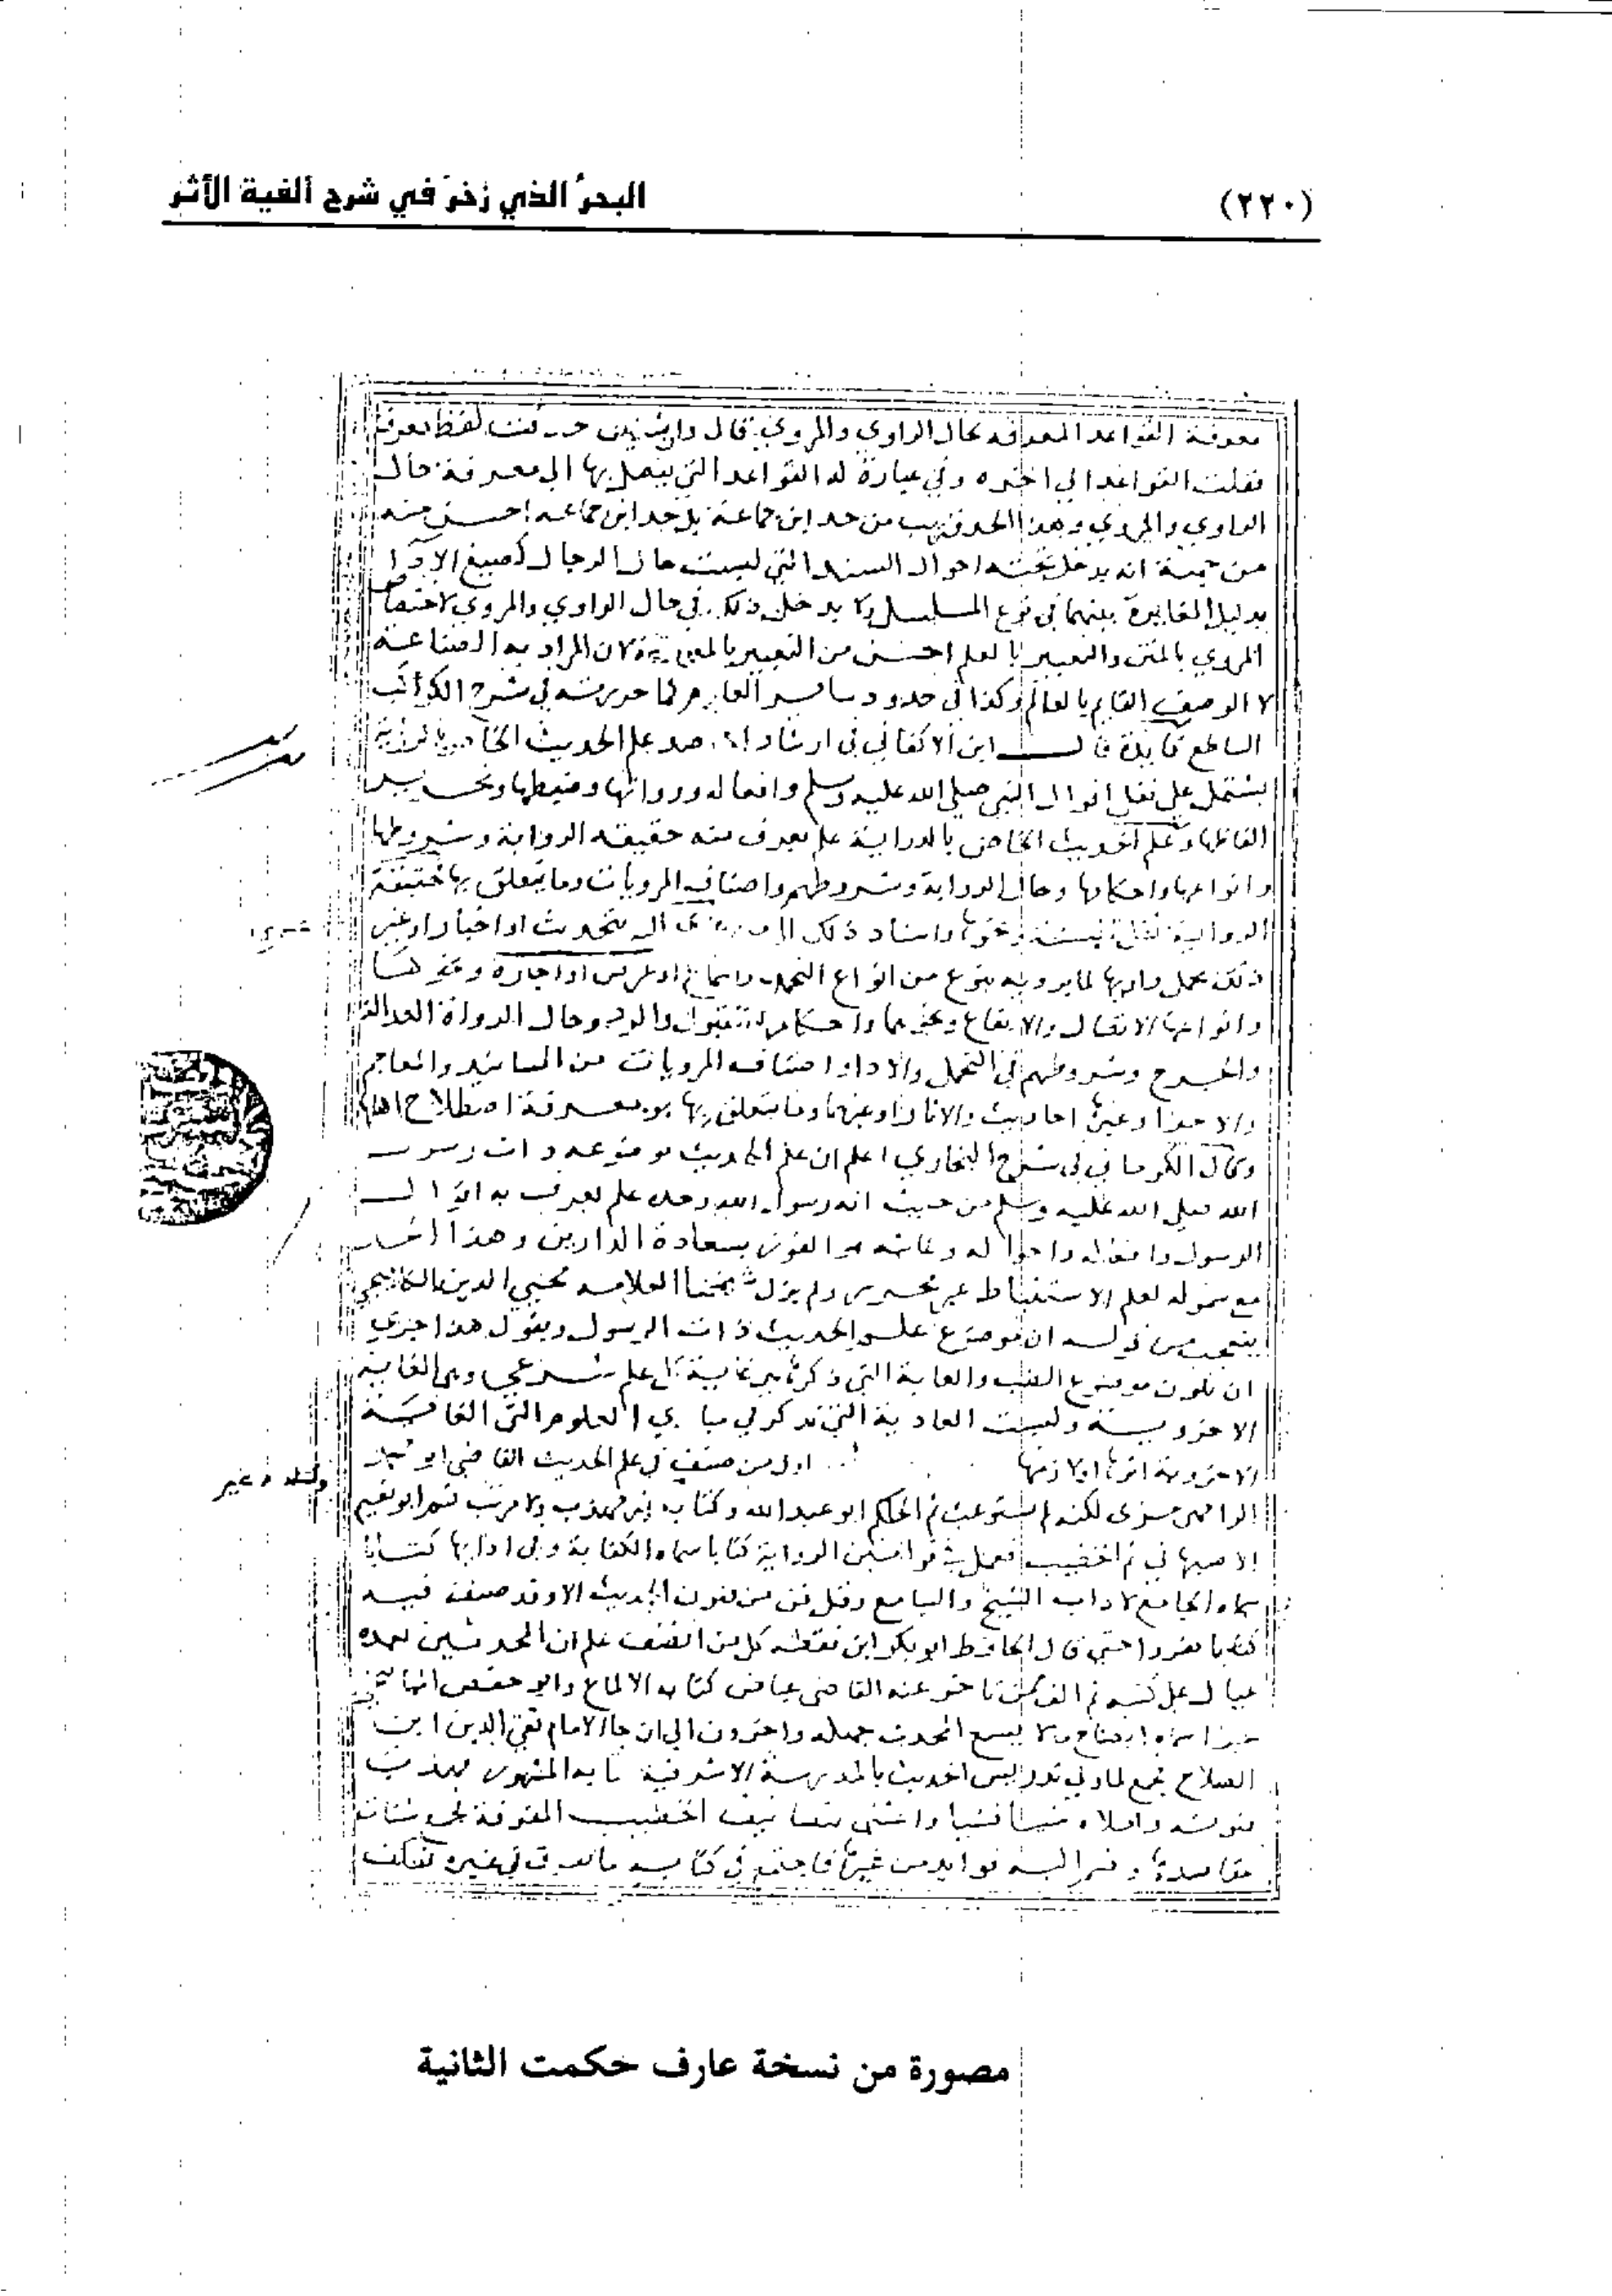 (٢٢٠)
البحرُ الذي زخرَ في شرح ألفية الأثر
معرفة القواعد المعرفة بحال الراوي والمروي قال وان شئت حذفت لفظ معرفة
فقلت القواعد الي اخره وفي عبارة له القواعد التي يتوصل بها الي معرفة حال
الراوي والمروي وهذا الحد قريب من حد ابن جماعة بل حد ابن جماعه احسن منه
من جهة انه يدخل تحته احوال السند التي ليست حال الرجال كصيغ الادا
بدليل المغايرة بينهما في نوع المسلسل ولا يدخل ذلك في حال الراوي والمروي لاختصاص
المروي بالمتن والتعبير بالعلم احسن من التعبير بالمعرفة لان المراد به الصناعة
لا الوصف القايم بالعالم وكذا في حدود ساير العلوم لما حررته في شرح الكوكب
الساطع فايدة قال ابن الاكفاني في ارشاد حد علم الحديث الخاص بالرواية
يشتمل علي نقل اقوال النبي صلي الله عليه وسلم وافعاله وروايتها وضبطها وتحرير
الفاظها وعلم الحديث الخاص بالدراية علم يعرف منه حقيقة الرواية وشروطها
وانواعها واحكامها وحال الرواية وشروطهم واصناف المرويات وما يتعلق بها فحقيقة
الرواية نقل السنة ونحوها واسناد ذلك الي من عزي اليه بتحديث او اخبار او غير
ذلك تحمل راويها لما يرويه بنوع من انواع التحمل من سماع او عرض او اجازة ونحوها
وانواعها الاتصال والانقطاع ونحوهما واحكامها القبول والرد وحال الرواة العدالة
والجرح وشروطهم في التحمل والادا واصناف المرويات من المسانيد والمعاجم
والاجزا وغيرها احاديث والاثارا وغيرهما وما يتعلق بها هو معرفة اصطلاح اهلها
وقال الكرماني في شرح البخاري اعلم ان علم الحديث موضوعه ذات رسول
الله صلي الله عليه وسلم من حيث انه رسول الله وحده علم يعرف به اقوال
الرسول وافعاله واحواله وغايته هو الفوز بسعادة الدارين وهذا الحد
مع شموله لعلم الاستنباط غير محرر ولم يزل شيخنا العلامه محيي الدين الكافيجي
يتعجب من قوله ان موضوع علم الحديث ذات الرسول ويقول هذا جدير
ان يكون موضوع الطب والغاية التي ذكرها هي غاية كل علم شرعي وهي الغاية
الاخروية وليست العادية التي تذكر في مبادي العلوم التي الغاية
الاخروية اثرها او لازمها اول من صنف في علم الحديث القاضي ابو محمد
الرامهرمزي لكنه لم يستوعب ثم الحاكم ابو عبد الله وكتابه غير مهذب ولا مرتب ثم ابو نعيم
الاصبهاني ثم الخطيب فعمل في قوانين الرواية كتابا سماه الكفاية وفي ادابها كتابا
سماه الجامع لاداب الشيخ والسامع وقل فن من فنون الحديث الا وقد صنف فيه
كتابا مفردا حتي قال الحافظ ابو بكر ابن نقطه كل من انصف علم ان المحدثين بعده
عيال علي كتبه ثم الف ممن تاخر عنه القاضي عياض كتابه الالماع وابو حفص الميانجي
جزا سماه ايضاح ما لا يسع المحدث جهله واخرون الي ان جا الامام تقي الدين ابن
الصلاح فجمع لما ولي تدريس الحديث بالمدرسة الاشرفية كتابه المشهور فهذب
فنونه واملاه شيا فشيا واعتني بتصانيف الخطيب المفرقة فجمع شتات
مقاصدها وضم اليه فوايد من غيرها فاجتمع في كتابه ما تفرق في غيره فعكف
مصورة من نسخة عارف حكمت الثانية